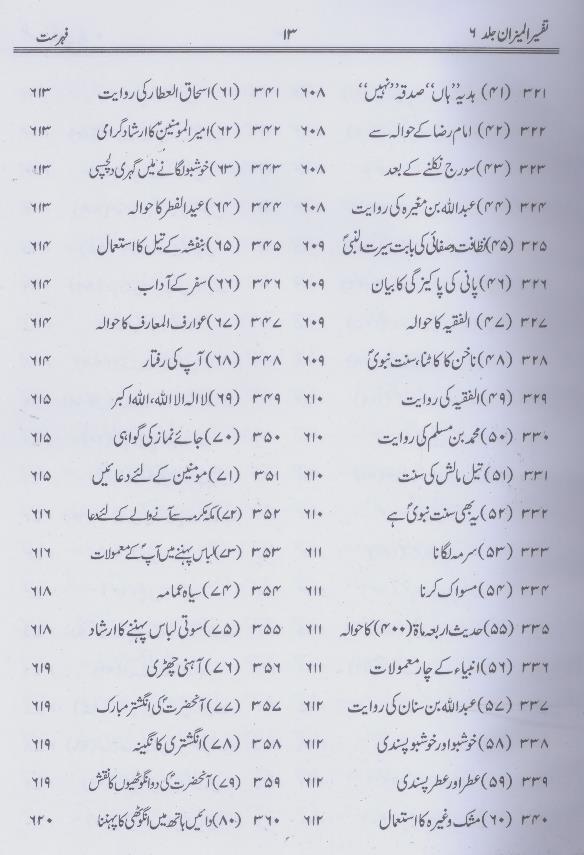 تفسیر المیزان جلد ۶ ۱۳ فہرست
۳۲۱ (۴۱) ہدیہ ”ہاں“ صدقہ ”نہیں“ ۶۰۸
۳۲۲ (۴۲) امام رضاؑ کے حوالہ سے ۶۰۸
۳۲۳ (۴۳) سورج نکلنے کے بعد ۶۰۸
۳۲۴ (۴۴) عبداللہ بن مغیرہ کی روایت ۶۰۸
۳۲۵ (۴۵) نظافت و صفائی کی بابت سیرت النبیؐ ۶۰۹
۳۲۶ (۴۶) پانی کی پاکیزگی کا بیان ۶۰۹
۳۲۷ (۴۷) الفقیہ کا حوالہ ۶۰۹
۳۲۸ (۴۸) ناخن کا کاٹنا، سنت نبویؐ ۶۰۹
۳۲۹ (۴۹) الفقیہ کی روایت ۶۱۰
۳۳۰ (۵۰) محمد بن مسلم کی روایت ۶۱۰
۳۳۱ (۵۱) تیل مالش کی سنت ۶۱۰
۳۳۲ (۵۲) یہ بھی سنت نبویؐ ہے ۶۱۰
۳۳۳ (۵۳) سرمہ لگانا ۶۱۱
۳۳۴ (۵۴) مسواک کرنا ۶۱۱
۳۳۵ (۵۵) حدیث اربعہ ماۃ (۴۰۰) کا حوالہ ۶۱۱
۳۳۶ (۵۶) انبیاء کے چار معمولات ۶۱۱
۳۳۷ (۵۷) عبداللہ بن سنان کی روایت ۶۱۲
۳۳۸ (۵۸) خوشبو اور خوشبو پسندی ۶۱۲
۳۳۹ (۵۹) عطر اور عطر پسندی ۶۱۲
۳۴۰ (۶۰) مشک وغیرہ کا استعمال ۶۱۲
۳۴۱ (۶۱) اسحاق العطار کی روایت ۶۱۳
۳۴۲ (۶۲) امیر المومنینؑ کا ارشاد گرامی ۶۱۳
۳۴۳ (۶۳) خوشبو لگانے میں گہری دلچسپی ۶۱۳
۳۴۴ (۶۴) عید الفطر کا حوالہ ۶۱۳
۳۴۵ (۶۵) بنفشہ کے تیل کا استعمال ۶۱۴
۳۴۶ (۶۶) سفر کے آداب ۶۱۴
۳۴۷ (۶۷) عوارف المعارف کا حوالہ ۶۱۴
۳۴۸ (۶۸) آپ کی رفتار ۶۱۴
۳۴۹ (۶۹) لا الہ الا اللہ، اللہ اکبر ۶۱۵
۳۵۰ (۷۰) جائے نماز کی گواہی ۶۱۵
۳۵۱ (۷۱) مومنین کے لئے دعائیں ۶۱۵
۳۵۲ (۷۲) مکہ مکرمہ سے آنے والے کے لئے دعا ۶۱۶
۳۵۳ (۷۳) لباس پہننے میں آپؐ کے معمولات ۶۱۶
۳۵۴ (۷۴) سیاہ عمامہ ۶۱۸
۳۵۵ (۷۵) سوتی لباس پہننے کا ارشاد ۶۱۸
۳۵۶ (۷۶) آہنی چھڑی ۶۱۹
۳۵۷ (۷۷) آنحضرتؐ کی انگشتر مبارک ۶۱۹
۳۵۸ (۷۸) انگشتری کا نگینہ ۶۱۹
۳۵۹ (۷۹) آنحضرتؐ کی دو انگوٹھیوں کا نقش ۶۱۹
۳۶۰ (۸۰) دائیں ہاتھ میں انگوٹھی کا پہننا ۶۲۰